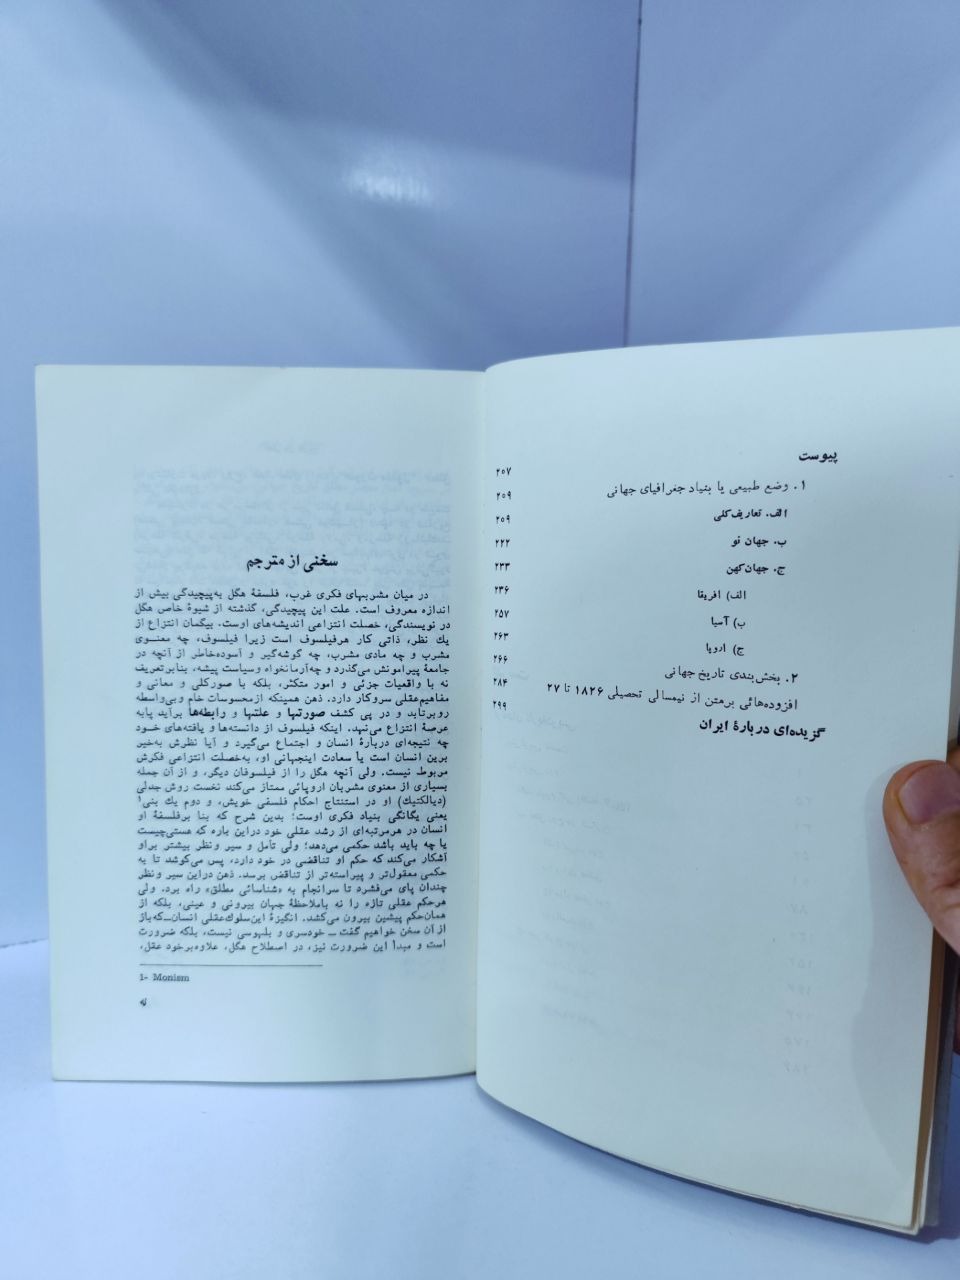 پیوست
۲۰۷
۱. وضع طبیعی یا بنیاد جغرافیای جهانی ۲۰۹
الف. تعاریف‌کلی ۲۰۹
ب. جهان نو ۲۲۲
ج. جهان‌کهن ۲۳۳
الف) افریقا ۲۳۶
ب) آسیا ۲۵۷
ج) اروپا ۲۶۳
۲. بخش‌بندی تاریخ جهانی ۲۶۶
افزوده‌هائی برمتن از نیمسالی تحصیلی ۱۸۲۶ تا ۲۷ ۲۸۴
گزیده‌ای دربارهٔ ایران ۲۹۹
سخنی از مترجم
در میان مشربهای فکری غرب، فلسفهٔ هگل به‌پیچیدگی بیش از
اندازه معروف است. علت این پیچیدگی، گذشته از شیوهٔ خاص هگل
در نویسندگی، خصلت انتزاعی اندیشه‌های اوست. بیگمان انتزاع از
یك نظر، ذاتی کار هرفیلسوف است زیرا فیلسوف، چه معنوی
مشرب و چه مادی مشرب، چه گوشه‌گیر و آسوده‌خاطر از آنچه در
جامعهٔ پیرامونش می‌گذرد و چه‌آرمانخواه وسیاست پیشه، بنابرتعریف
نه با واقعیات جزئی و امور متکثر، بلکه با صورکلی و معانی و
مفاهیم‌عقلی سروکار دارد. ذهن همینکه ازمحسوسات خام وبی‌واسطه
روبرتابد و در پی کشف صورتها و علتها و رابطه‌ها برآید پابه
عرصهٔ انتزاع می‌نهد. اینکه فیلسوف از دانسته‌ها و یافته‌های خود
چه نتیجه‌ای دربارهٔ انسان و اجتماع می‌گیرد و آیا نظرش به‌خیر
برین انسان است یا سعادت اینجهانی او، به‌خصلت انتزاعی فکرش
مربوط نیست. ولی آنچه هگل را از فیلسوفان دیگر، و از آن جمله
بسیاری از معنوی مشربان اروپائی ممتاز می‌کند نخست روش جدلی
(دیالکتیك) او در استنتاج احکام فلسفی خویش، و دوم یك بنی۱
یعنی یگانگی بنیاد فکری اوست؛ بدین شرح که بنا برفلسفهٔ او
انسان در هرمرتبه‌ای از رشد عقلی خود دراین باره که هستی‌چیست
یا چه باید باشد حکمی می‌دهد؛ ولی تأمل و سیر ونظر بیشتر براو
آشکار می‌کند که حکم او تناقضی در خود دارد، پس می‌کوشد تا به
حکمی معقول‌تر و پیراسته‌تر از تناقض برسد. ذهن دراین سیر ونظر
چندان پای می‌فشرد تا سرانجام به «شناسائی مطلق» راه برد. ولی
هرحکم عقلی تازه را نه باملاحظهٔ جهان بیرونی و عینی، بلکه از
همان‌حکم پیشین بیرون می‌کشد. انگیزهٔ این‌سلوك‌عقلی انسان_که‌باز
از آن سخن خواهیم گفت_ خودسری و بلهوسی نیست، بلکه ضرورت
است و مبدأ این ضرورت نیز، در اصطلاح هگل، علاوه‌برخود عقل،
1- Monism